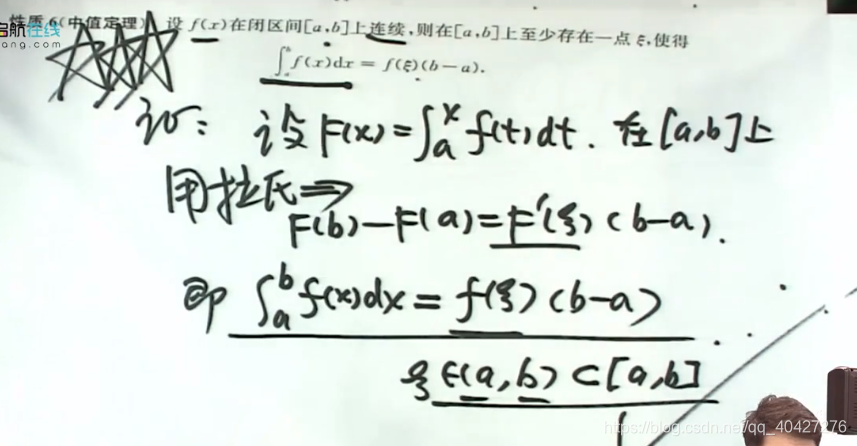 性质6(中值定理) 设 f(x)在闭区间[a,b]上连续,则在[a,b]上至少存在一点 ξ,使得
启航在线
ang.com
∫ₐᵇ f(x)dx = f(ξ)(b−a).
证: 设 F(x)=∫ₐˣ f(t)dt. 在[a,b]上
用拉氏⇒
F(b)−F(a)=F′(ξ)(b−a).
即 ∫ₐᵇ f(x)dx = f(ξ)(b−a)
ξ∈(a,b)⊂[a,b]
https://blog.csdn.net/qq_40427276